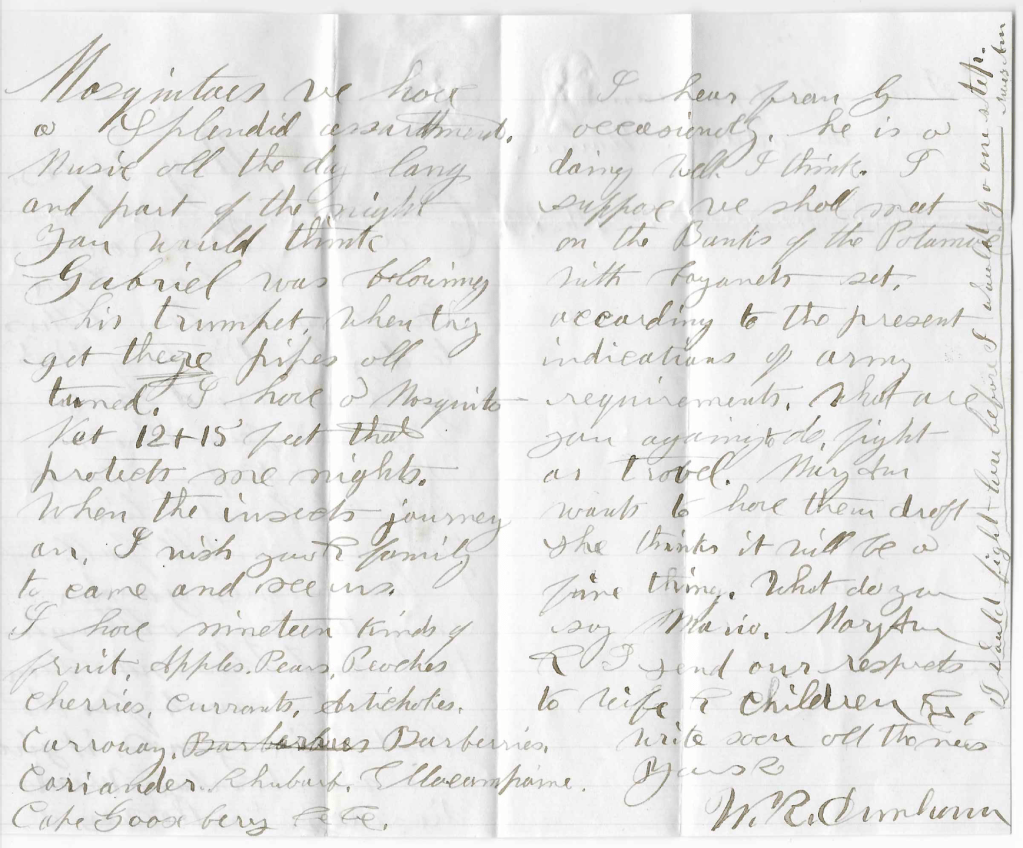 Mosquitoes we have
a Splendid assortment.
Music all the day long
and part of the night
You would think
Gabriel was blowing
his trumpet, when they
get there pipes all
tuned. I have a Mosquito
Net 12 + 15 feet that
protects me nights.
When the insects journey
on. I wish you & family
to come and see us.
I have nineteen kinds of
fruit, Apples. Pears, Peaches
Cherries, Currants, Artichokes.
Carroway, Barberries Barberries,
Coriander. Rhubarb. Ellacampaine.
Cape Gooseberry &c &c.
I hear from G
occasionly. he is a
doing well I think. I
suppose we shall meet
on the Banks of the Potamac
with bayanets set,
according to the present
indications of army
requirements. What are
you againg to do, fight
or travel. Mary Ann
wants to have them draft
She thinks it will be a
fine thing. What do you
say Maria. Mary Ann
& I send our respects
to wife & children &c,
Write soon all the news
Yours &
W. R.
I would fight here before I would go one step.
Mary Ann